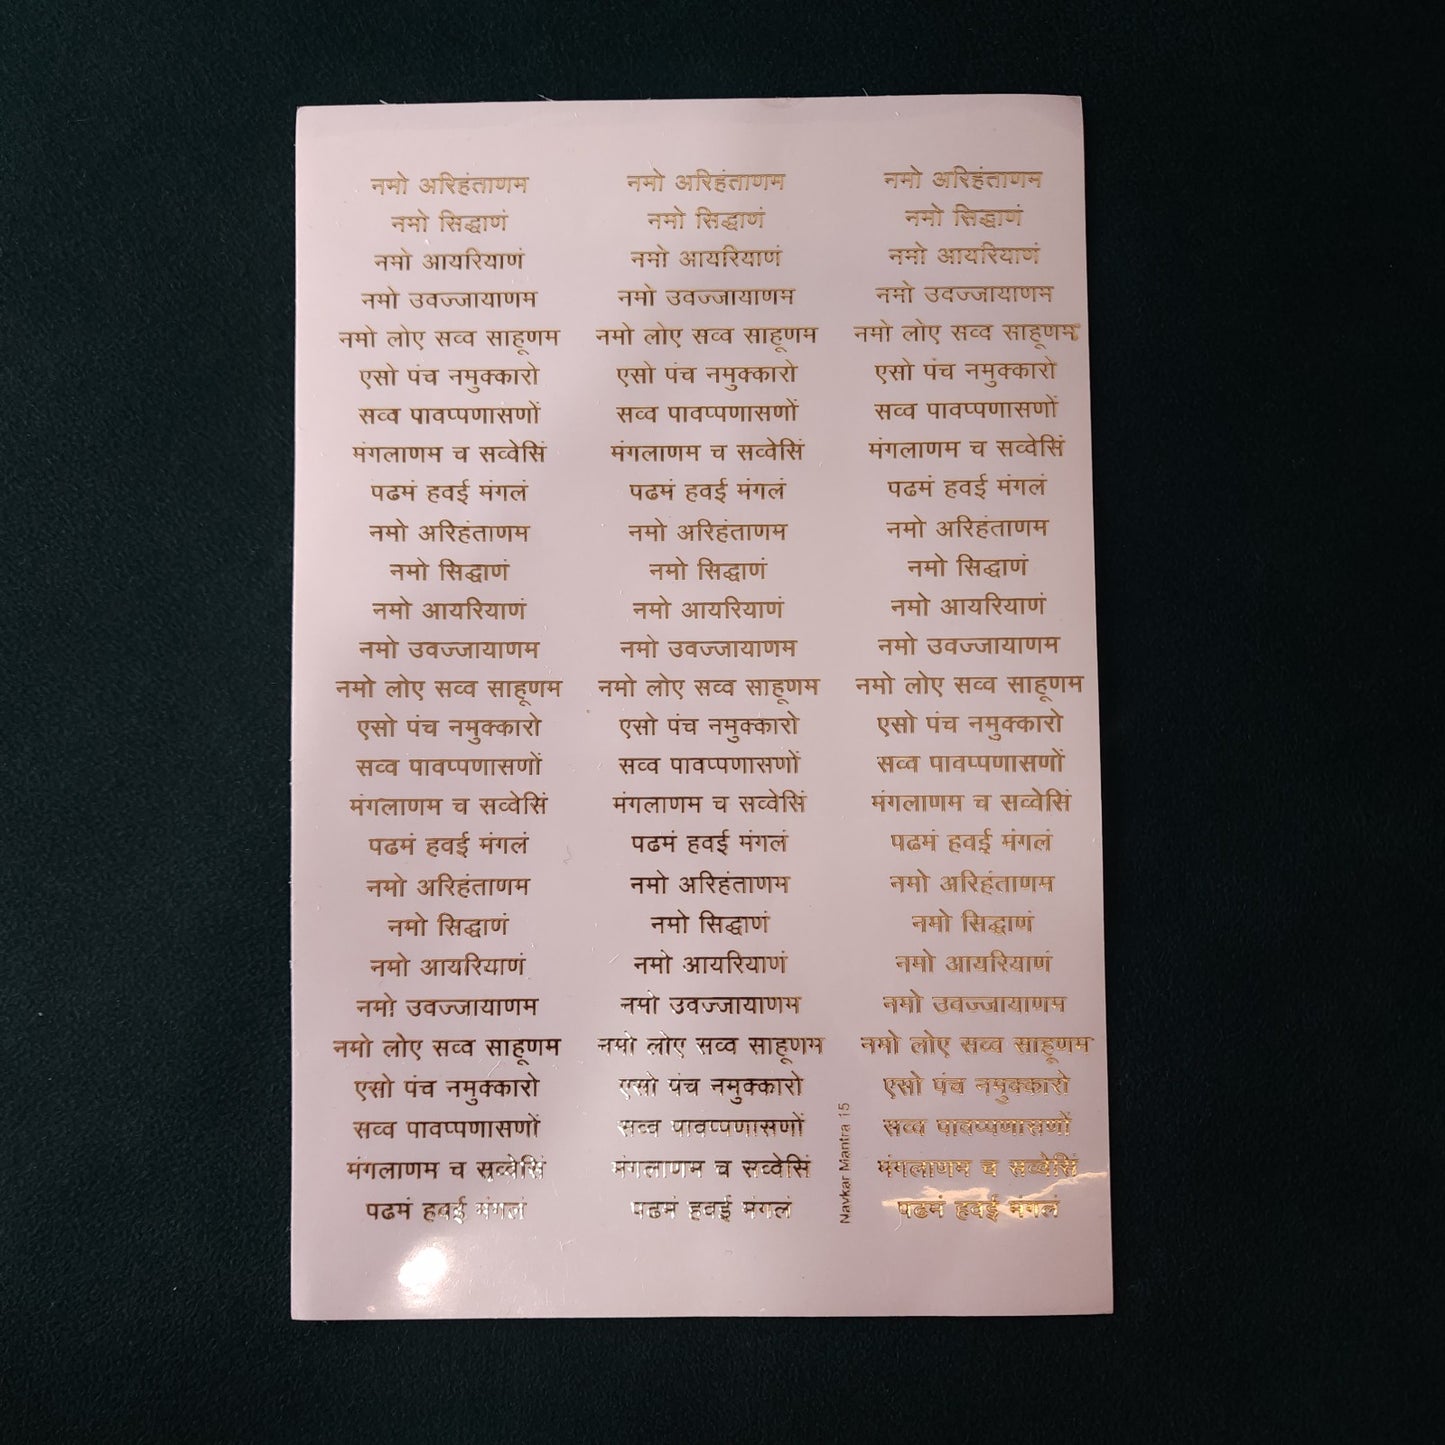 नमो अरिहंताणम
नमो सिद्धाणं
नमो आयरियाणं
नमो उवज्जायाणम
नमो लोए सव्व साहूणम
एसो पंच नमुक्कारो
सव्व पावप्पणासणों
मंगलाणम च सव्वेसिं
पढमं हवई मंगलं
नमो अरिहंताणम
नमो सिद्धाणं
नमो आयरियाणं
नमो उवज्जायाणम
नमो लोए सव्व साहूणम
एसो पंच नमुक्कारो
सव्व पावप्पणासणों
मंगलाणम च सव्वेसिं
पढमं हवई मंगलं
नमो अरिहंताणम
नमो सिद्धाणं
नमो आयरियाणं
नमो उवज्जायाणम
नमो लोए सव्व साहूणम
एसो पंच नमुक्कारो
सव्व पावप्पणासणों
मंगलाणम च सव्वेसिं
पढमं हवई मंगलं
नमो अरिहंताणम
नमो सिद्धाणं
नमो आयरियाणं
नमो उवज्जायाणम
नमो लोए सव्व साहूणम
एसो पंच नमुक्कारो
सव्व पावप्पणासणों
मंगलाणम च सव्वेसिं
पढमं हवई मंगलं
नमो अरिहंताणम
नमो सिद्धाणं
नमो आयरियाणं
नमो उवज्जायाणम
नमो लोए सव्व साहूणम
एसो पंच नमुक्कारो
सव्व पावप्पणासणों
मंगलाणम च सव्वेसिं
पढमं हवई मंगलं
नमो अरिहंताणम
नमो सिद्धाणं
नमो आयरियाणं
नमो उवज्जायाणम
नमो लोए सव्व साहूणम
एसो पंच नमुक्कारो
सव्व पावप्पणासणों
मंगलाणम च सव्वेसिं
पढमं हवई मंगलं
नमो अरिहंताणम
नमो सिद्धाणं
नमो आयरियाणं
नमो उवज्जायाणम
नमो लोए सव्व साहूणम
एसो पंच नमुक्कारो
सव्व पावप्पणासणों
मंगलाणम च सव्वेसिं
पढमं हवई मंगलं
नमो अरिहंताणम
नमो सिद्धाणं
नमो आयरियाणं
नमो उवज्जायाणम
नमो लोए सव्व साहूणम
एसो पंच नमुक्कारो
सव्व पावप्पणासणों
मंगलाणम च सव्वेसिं
पढमं हवई मंगलं
नमो अरिहंताणम
नमो सिद्धाणं
नमो आयरियाणं
नमो उवज्जायाणम
नमो लोए सव्व साहूणम
एसो पंच नमुक्कारो
सव्व पावप्पणासणों
मंगलाणम च सव्वेसिं
पढमं हवई मंगलं
Navkar Mantra 15